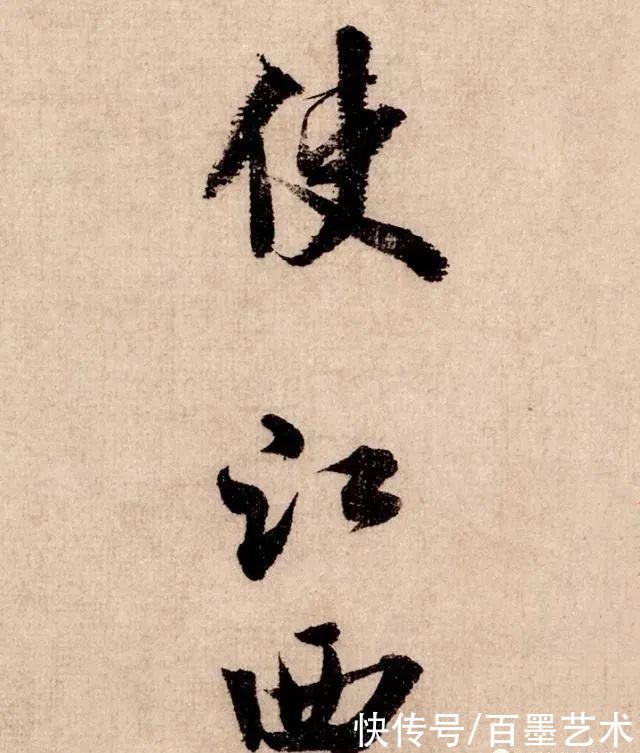 使江西
快传号/百墨艺术